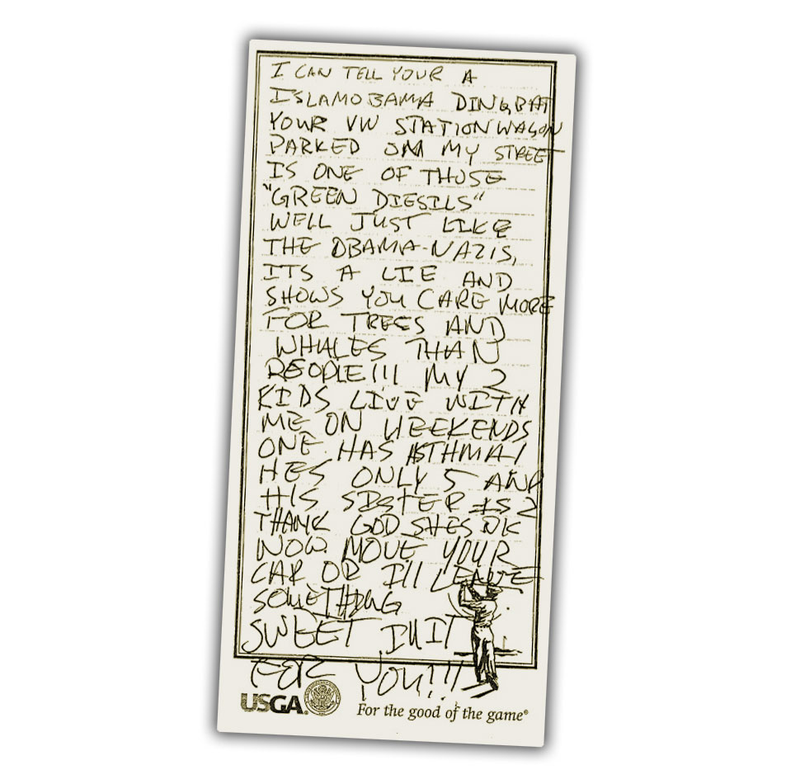 I CAN TELL YOUR A
ISLAMOBAMA DINGBAT
YOUR VW STATIONWAGON
PARKED ON MY STREET
IS ONE OF THOSE
"GREEN DIESILS"
WELL JUST LIKE
THE OBAMA-NAZIS,
ITS A LIE AND
SHOWS YOU CARE MORE
FOR TREES AND
WHALES THAN
PEOPLE!!! MY 2
KIDS LIVE WITH
ME ON WEEKENDS
ONE HAS ASTHMA!
HES ONLY 5 AND
HIS SISTER IS 2
THANK GOD SHES OK
NOW. MOVE YOUR
CAR OR I'll LEAVE
SOMETHING
SWEET IN IT
FOR YOU!!!
USGA® For the good of the game®